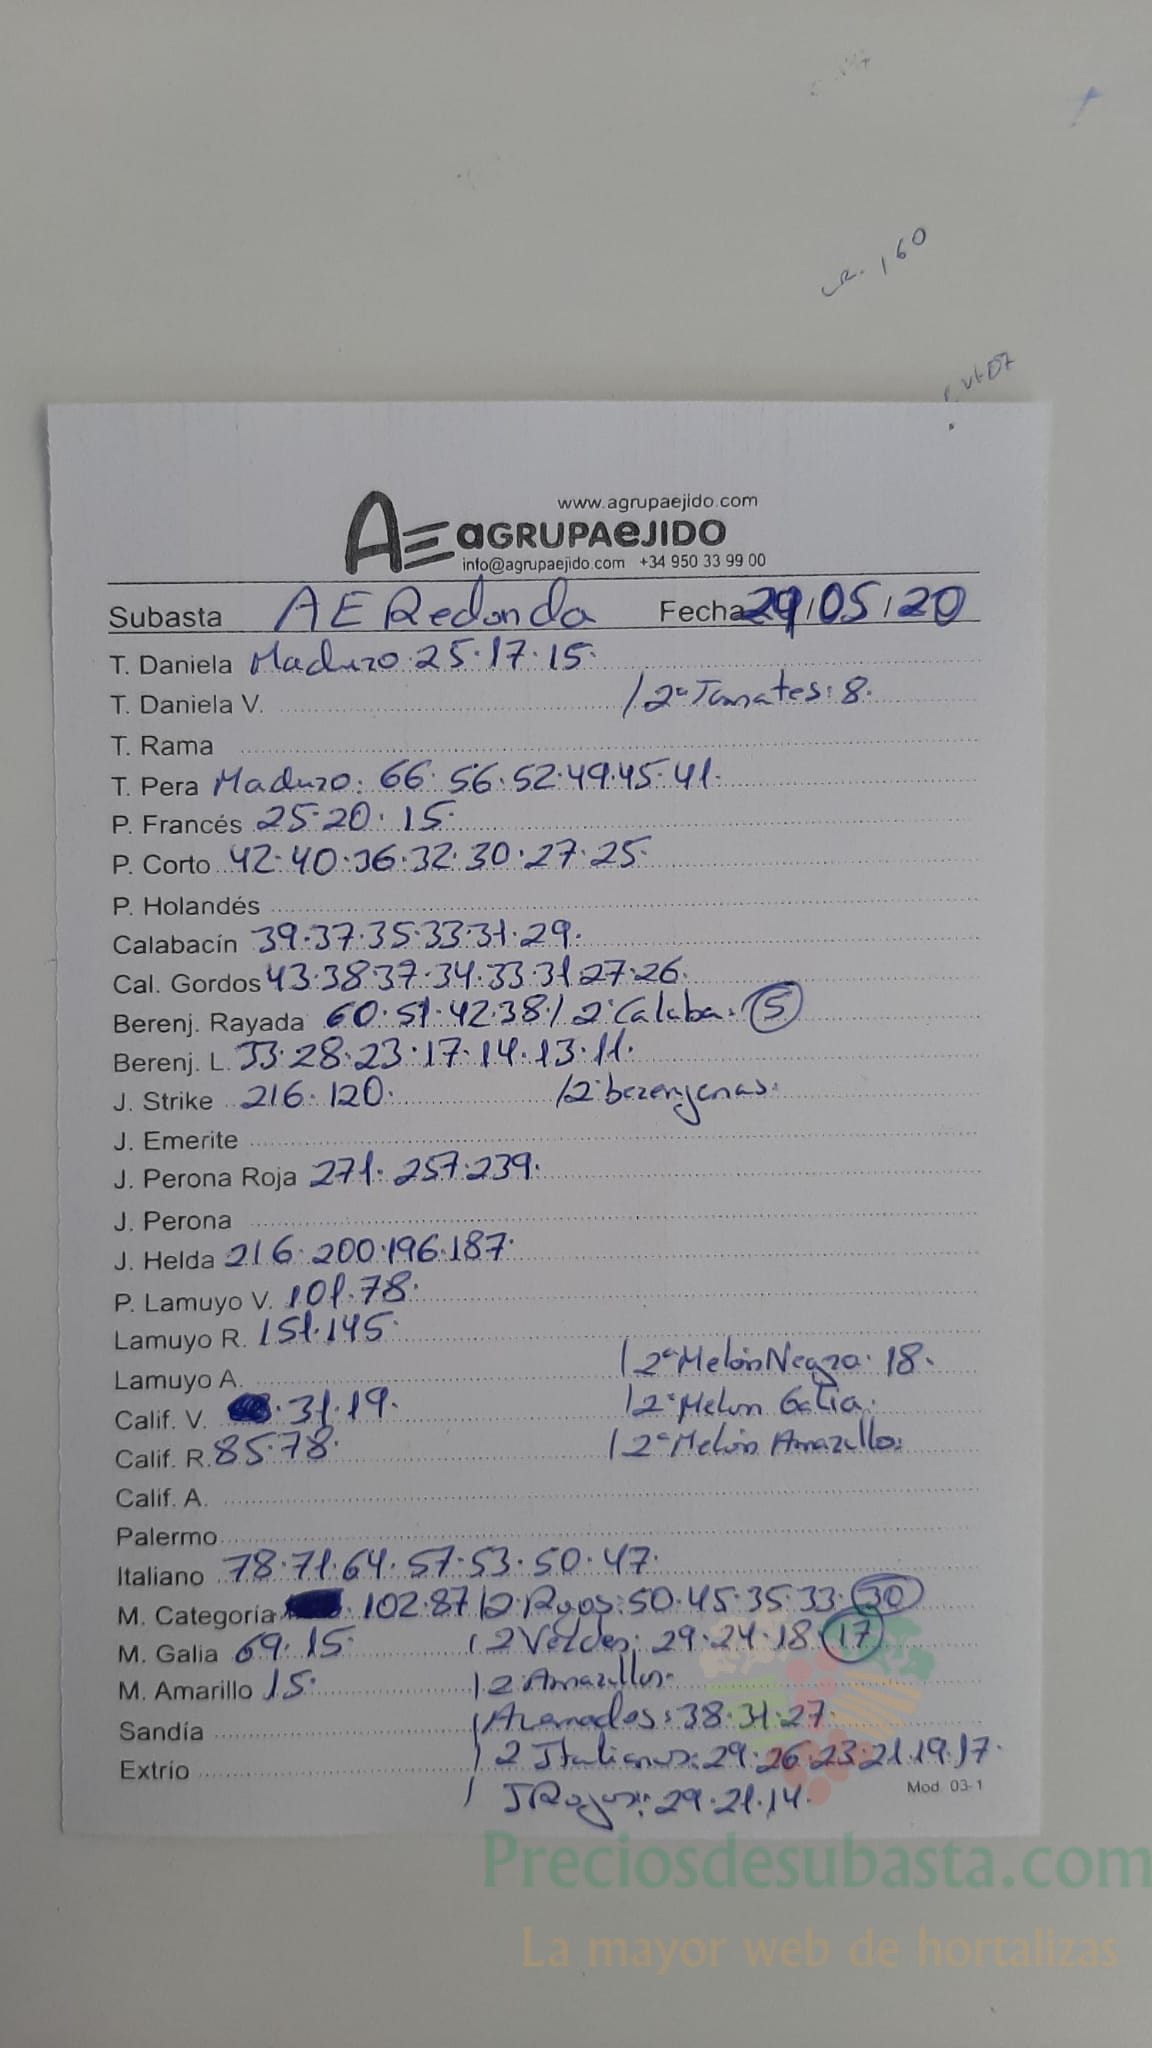 LR. 160
www.agrupaejido.com
AE aGRUPAeJIDO
info@agrupaejido.com +34 950 33 99 00
Subasta AE Redonda Fecha 29/05/20
T. Daniela Maduro: 25.17.15.
T. Daniela V. / 2ª Tomates: 8.
T. Rama
T. Pera Maduro: 66.56.52.49.45.41.
P. Francés 25.20.15.
P. Corto 42.40.36.32.30.27.25.
P. Holandés
Calabacín 39.37.35.33.31.29.
Cal. Gordos 43.38.37.34.33.31.27.26.
Berenj. Rayada 60.51.42.38. / 2ª Calaba. 5
Berenj. L. 33.28.23.17.14.13.11.
J. Strike 216.120. / 2ª berenjenas:
J. Emerite
J. Perona Roja 271.257.239.
J. Perona
J. Helda 216.200.196.187.
P. Lamuyo V. 101.78.
Lamuyo R. 151.145.
Lamuyo A. / 2ª Melón Negro: 18.
Calif. V. .31.19. / 2ª Melon Galia:
Calif. R. 85.78. / 2ª Melón Amarillo:
Calif. A.
Palermo
Italiano 78.71.64.57.53.50.47.
M. Categoría 102.87 / 2 Rojos: 50.45.35.33.30
M. Galia 69.15. / 2 Verdes: 29.24.18.17
M. Amarillo 15. / 2 Amarillos.
Sandía / Asenados: 38.31.27.
Extrio / 2 Italianos: 29.26.23.21.19.17.
/ I Rojos: 29.21.14.
Mod. 03-1
Preciosdesubasta.com
La mayor web de hortalizas